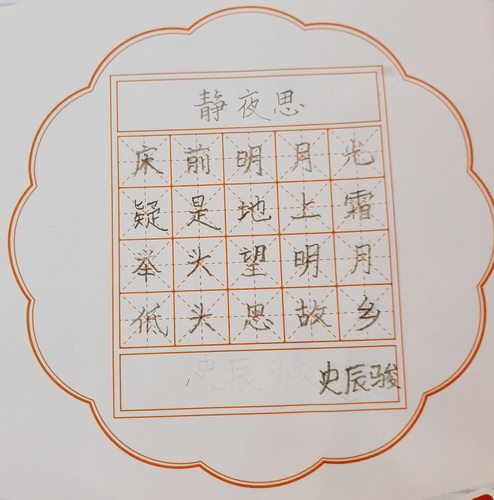 静夜思
床前明月光
疑是地上霜
举头望明月
低头思故乡
史辰骏